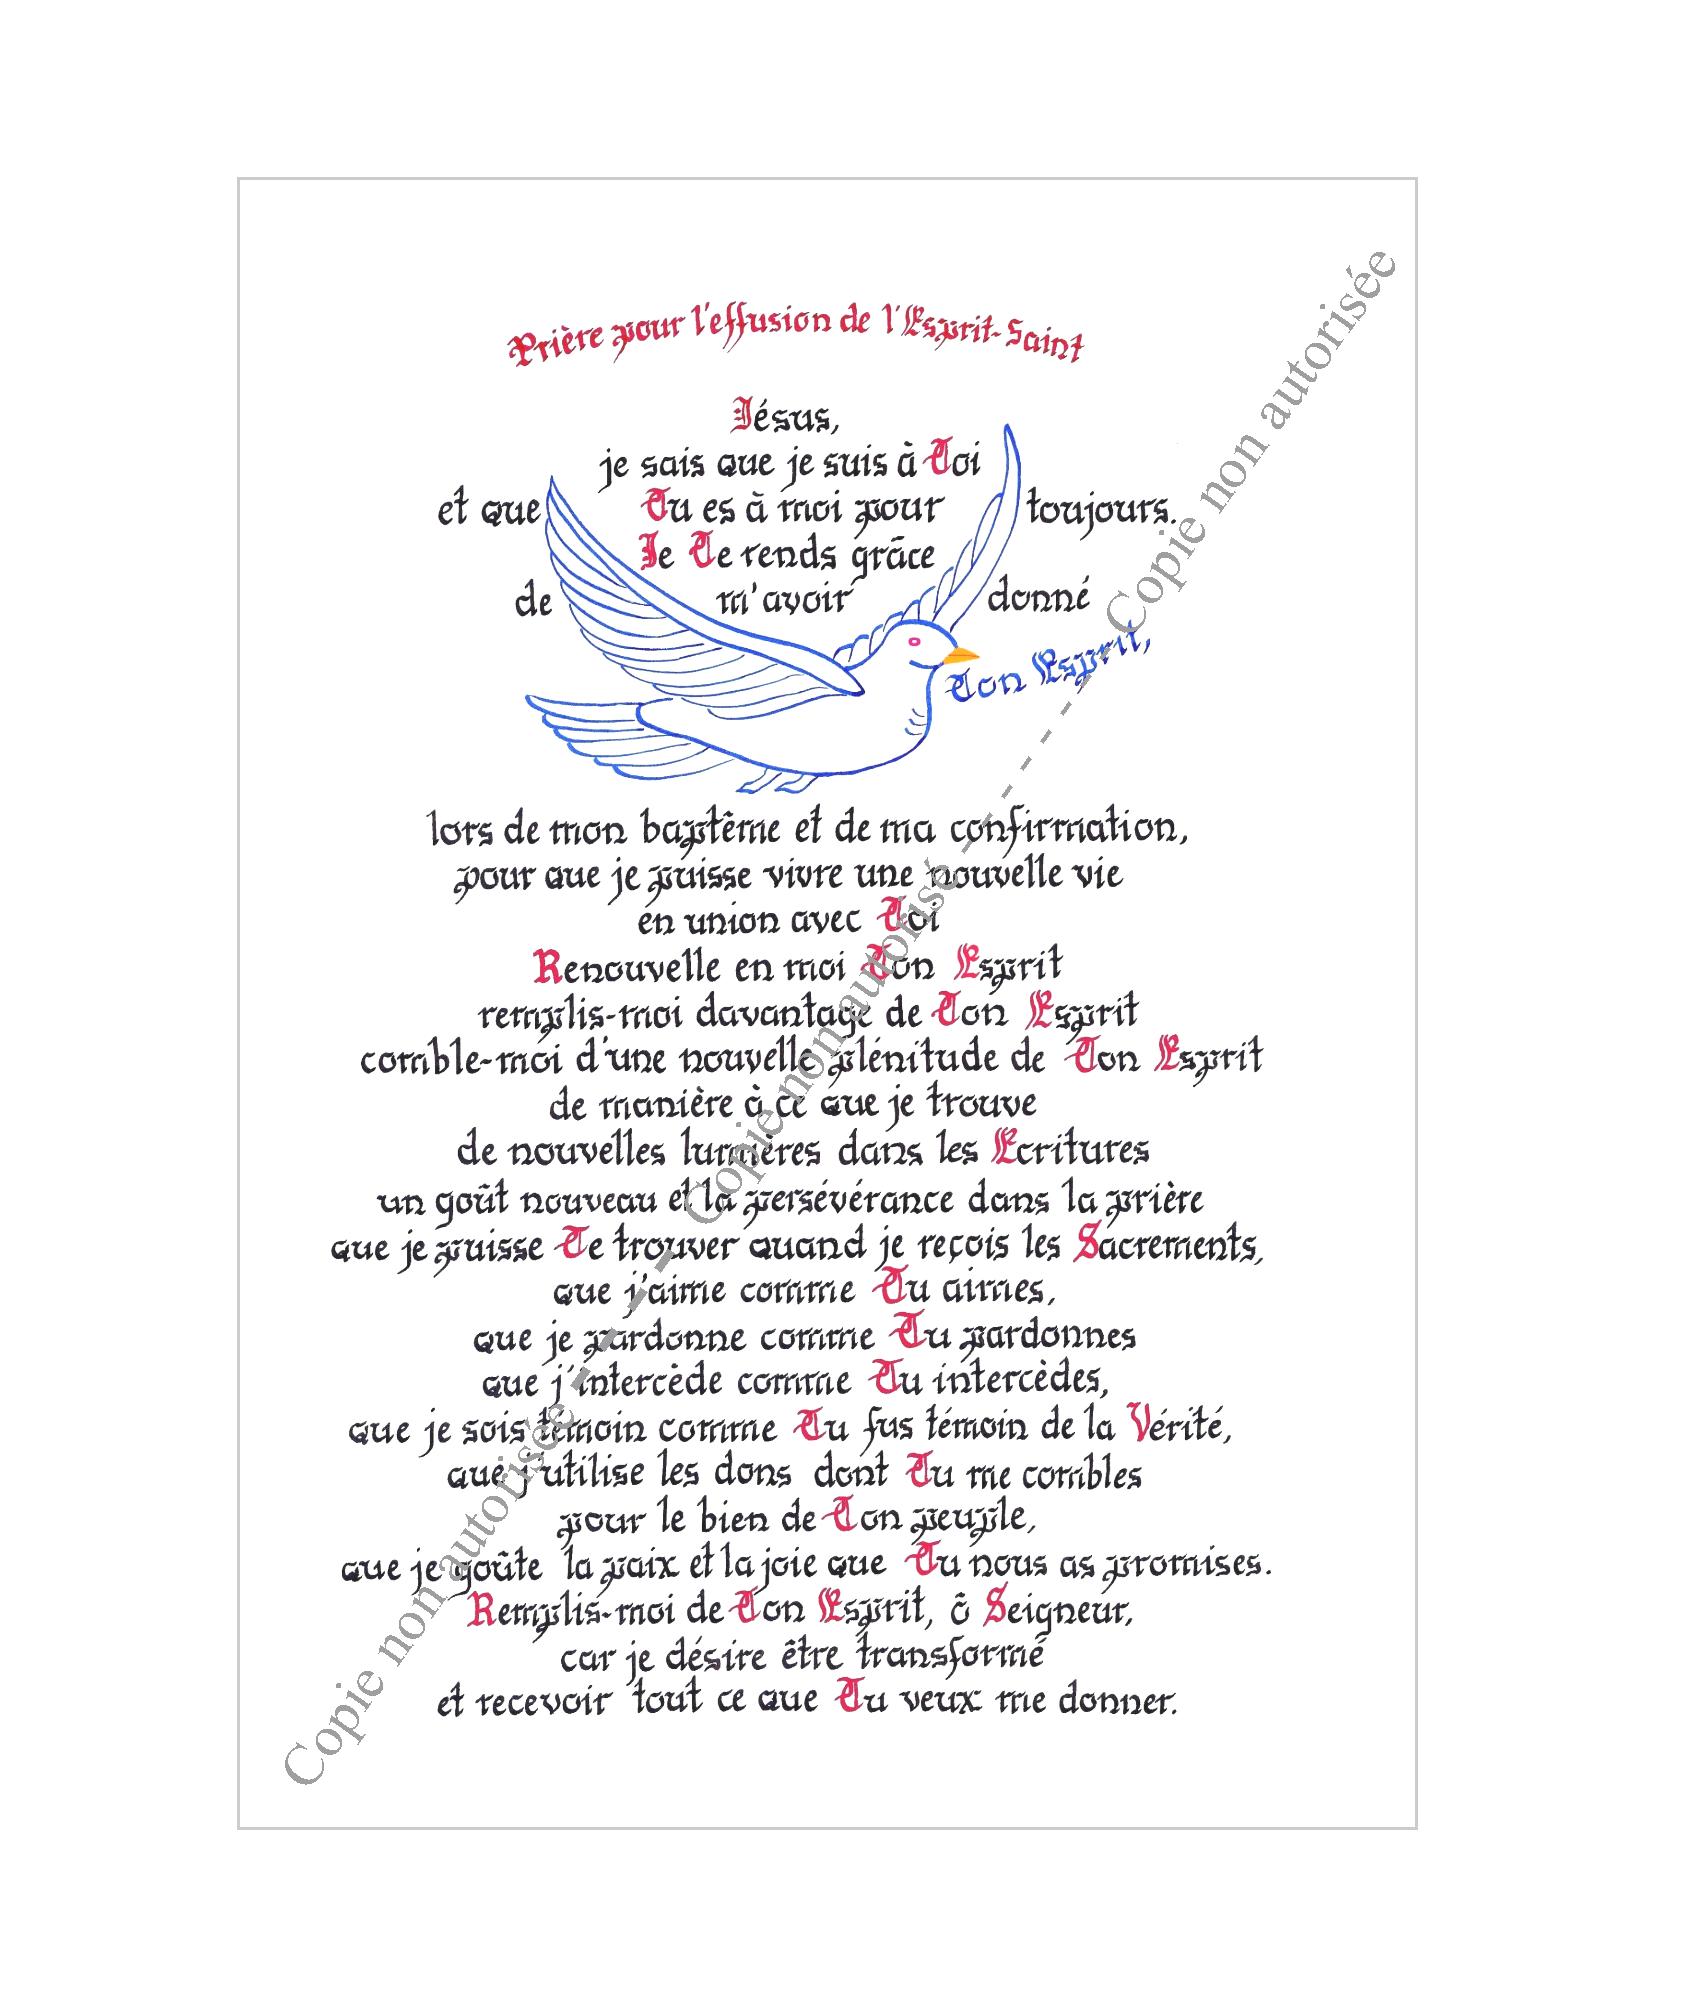 Prière pour l'effusion de l'Esprit-Saint
Jésus,
je sais que je suis à Toi
et que Tu es à moi pour toujours.
Je Te rends grâce
de m'avoir donné
Ton Esprit,
lors de mon baptême et de ma confirmation,
pour que je puisse vivre une nouvelle vie
en union avec Toi
Renouvelle en moi Ton Esprit
remplis-moi davantage de Ton Esprit
comble-moi d'une nouvelle plénitude de Ton Esprit
de manière à ce que je trouve
de nouvelles lumières dans les Ecritures
un goût nouveau et la persévérance dans la prière
que je puisse Te trouver quand je reçois les Sacrements,
que j'aime comme Tu aimes,
que je pardonne comme Tu pardonnes
que j'intercède comme Tu intercèdes,
que je sois témoin comme Tu fus témoin de la Vérité,
que j'utilise les dons dont Tu me combles
pour le bien de Ton peuple,
que je goûte la paix et la joie que Tu nous as promises.
Remplis-moi de Ton Esprit, ô Seigneur,
car je désire être transformé
et recevoir tout ce que Tu veux me donner.
Copie non autorisée - - Copie non autorisé - - - - - Copie non autorisée